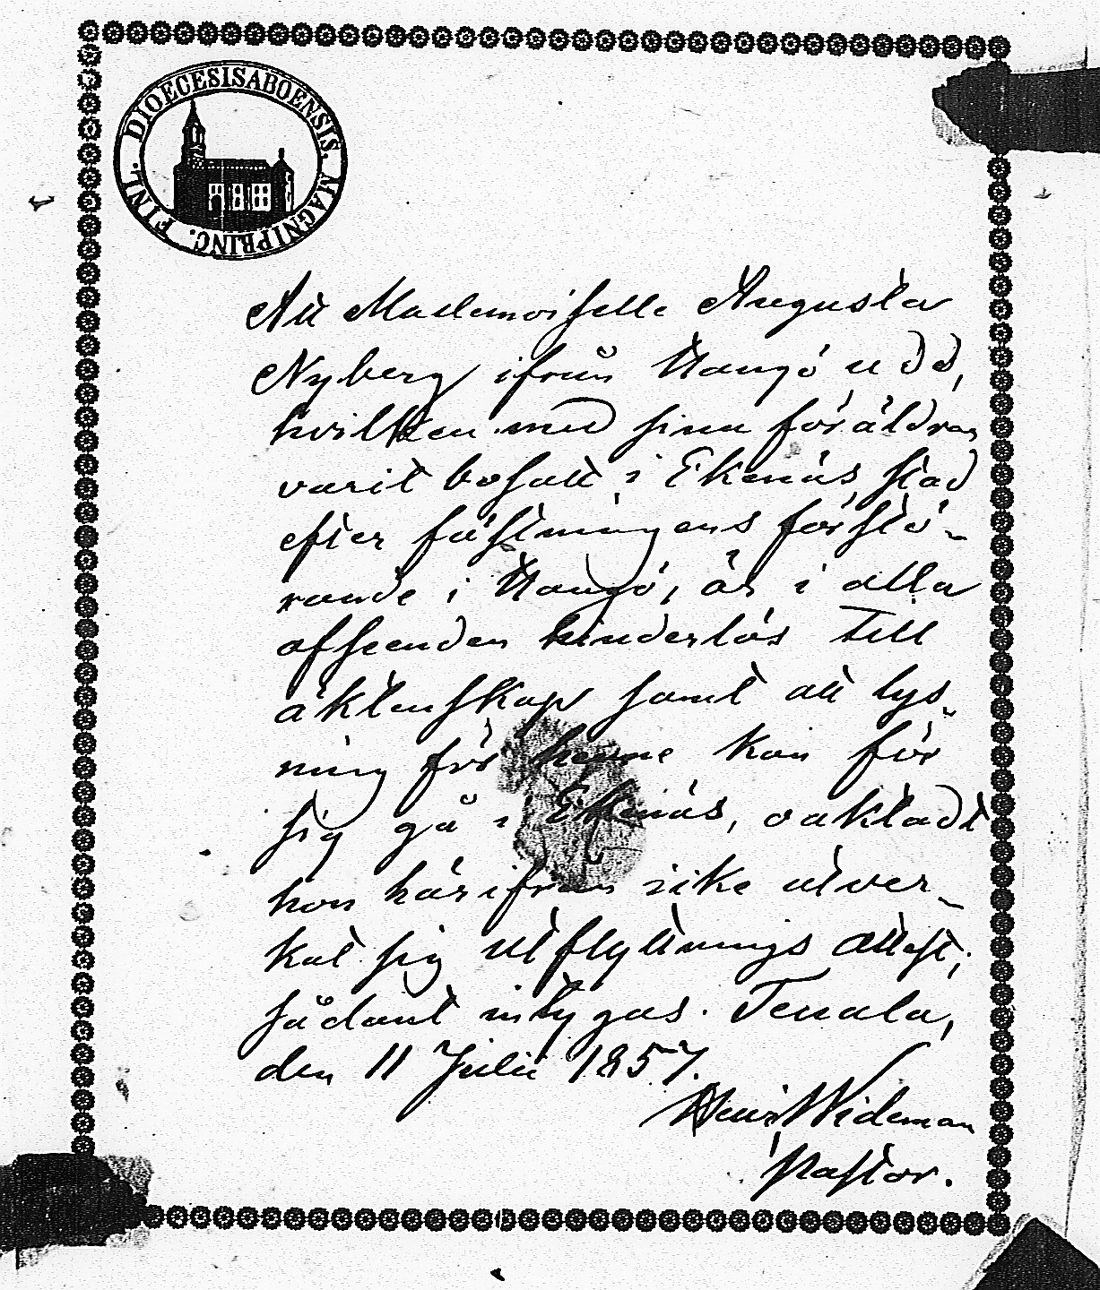 DIOECESIS ABOENSIS. MAGNI PRINC. FINL.
Att Mademoiselle Augusta
Nyberg ifrån Hangö udd,
hvilken med sina föräldrar
varit bosatt i Ekenäs stad
efter fästningens förstö-
rande i Hangö, är i alla
afseenden hinderlös till
äktenskap samt att lys-
ning för henne kan för
sig gå i Ekenäs, oaktadt
hon härifrån icke utver-
kat sig utflyttnings attest;
sådant intygas. Tenala,
den 11 Julii 1857.
Wideman
Pastor.